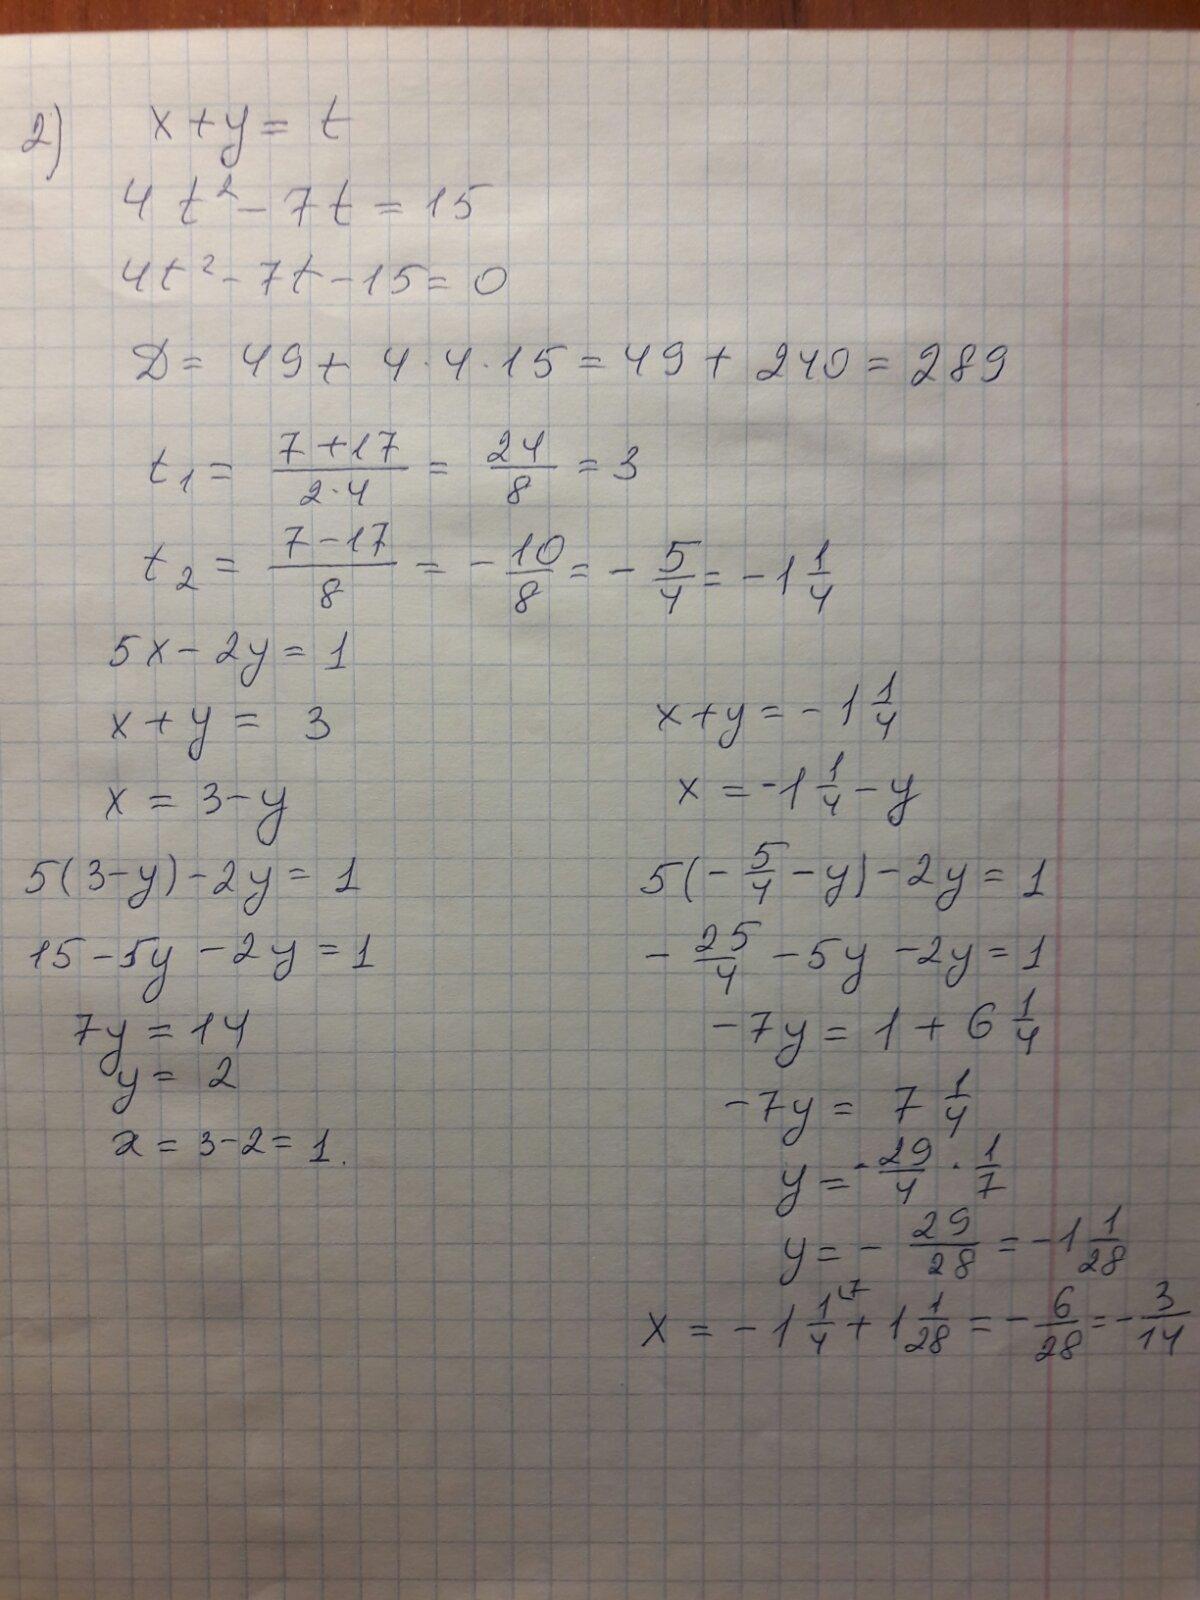 2) x + y = t
4 t² - 7t = 15
4t² - 7t - 15 = 0
D = 49 + 4 · 4 · 15 = 49 + 240 = 289
t₁ = (7 + 17)/(2 · 4) = 24/8 = 3
t₂ = (7 - 17)/8 = - 10/8 = - 5/4 = - 1 1/4
5x - 2y = 1
x + y = 3
x = 3 - y
5(3 - y) - 2y = 1
15 - 5y - 2y = 1
7y = 14
y = 2
x = 3 - 2 = 1.
x + y = - 1 1/4
x = - 1 1/4 - y
5(- 5/4 - y) - 2y = 1
- 25/4 - 5y - 2y = 1
- 7y = 1 + 6 1/4
- 7y = 7 1/4
y = - 29/4 · 1/7
y = - 29/28 = - 1 1/28
x = - 1 1/4 ⁷ + 1 1/28 = - 6/28 = - 3/14